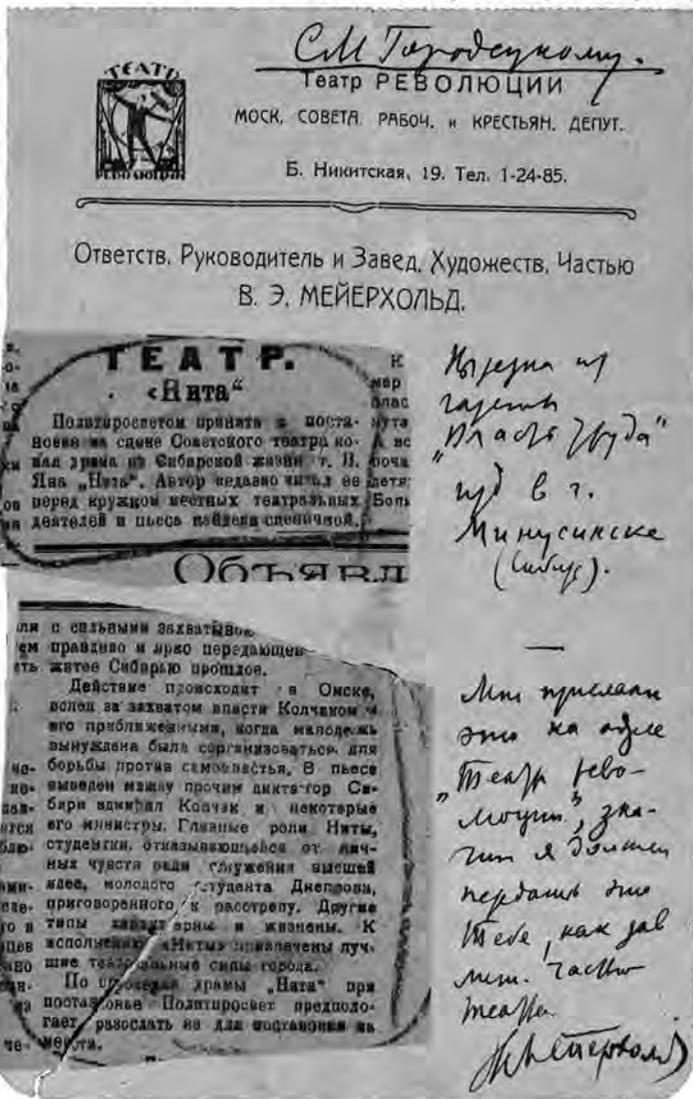 С М Городецкому.
ТЕАТР
РЕВОЛЮЦИИ
Театр РЕВОЛЮЦИИ
МОСК. СОВЕТА РАБОЧ. и КРЕСТЬЯН. ДЕПУТ.
Б. Никитская, 19. Тел. 1-24-85.
Ответств. Руководитель и Завед. Художеств. Частью
В. Э. МЕЙЕРХОЛЬД.
ТЕАТР.
«Нита“
Политпросветом принята к поста-
новке на сцене Советского театра но-
вая драма из Сибирской жизни т. П.
Яна „Нита“. Автор недавно читал ее
перед кружком местных театральных
деятелей и пьеса найдена сценичной,
Объявл
с сильными захватываю
правдиво и ярко передающее
житое Сибирью прошлое.
Действие происходит в Омске,
вслед за захватом власти Колчаком и
его приближенными, когда молодежь
вынуждена была сорганизоваться для
борьбы против самовластья. В пьесе
выведен между прочим диктатор Си-
бири адмирал Колчак и некоторые
его министры. Главные роли Ниты,
студентки, отказывающейся от лич-
ных чувств ради служения высшей
идее, молодого студента Днепрова,
приговоренного к расстрелу. Другие
типы характерны и жизнены. К
исполнению «Ниты» привлечены луч-
шие театральные силы города.
По драмы „Нита“ при
постановке Политпросвет предпола-
гает разослать ее для постановки на
места.
Вырезка из
газеты
„Власть труда”
изд в г.
Минусинске
(Сибирь).
Мне прислали
это на адрес
„Театр рево-
люции”, зна-
чит я должен
передать это
Тебе, как зав
лит. частью
театра.
В Мейерхольд